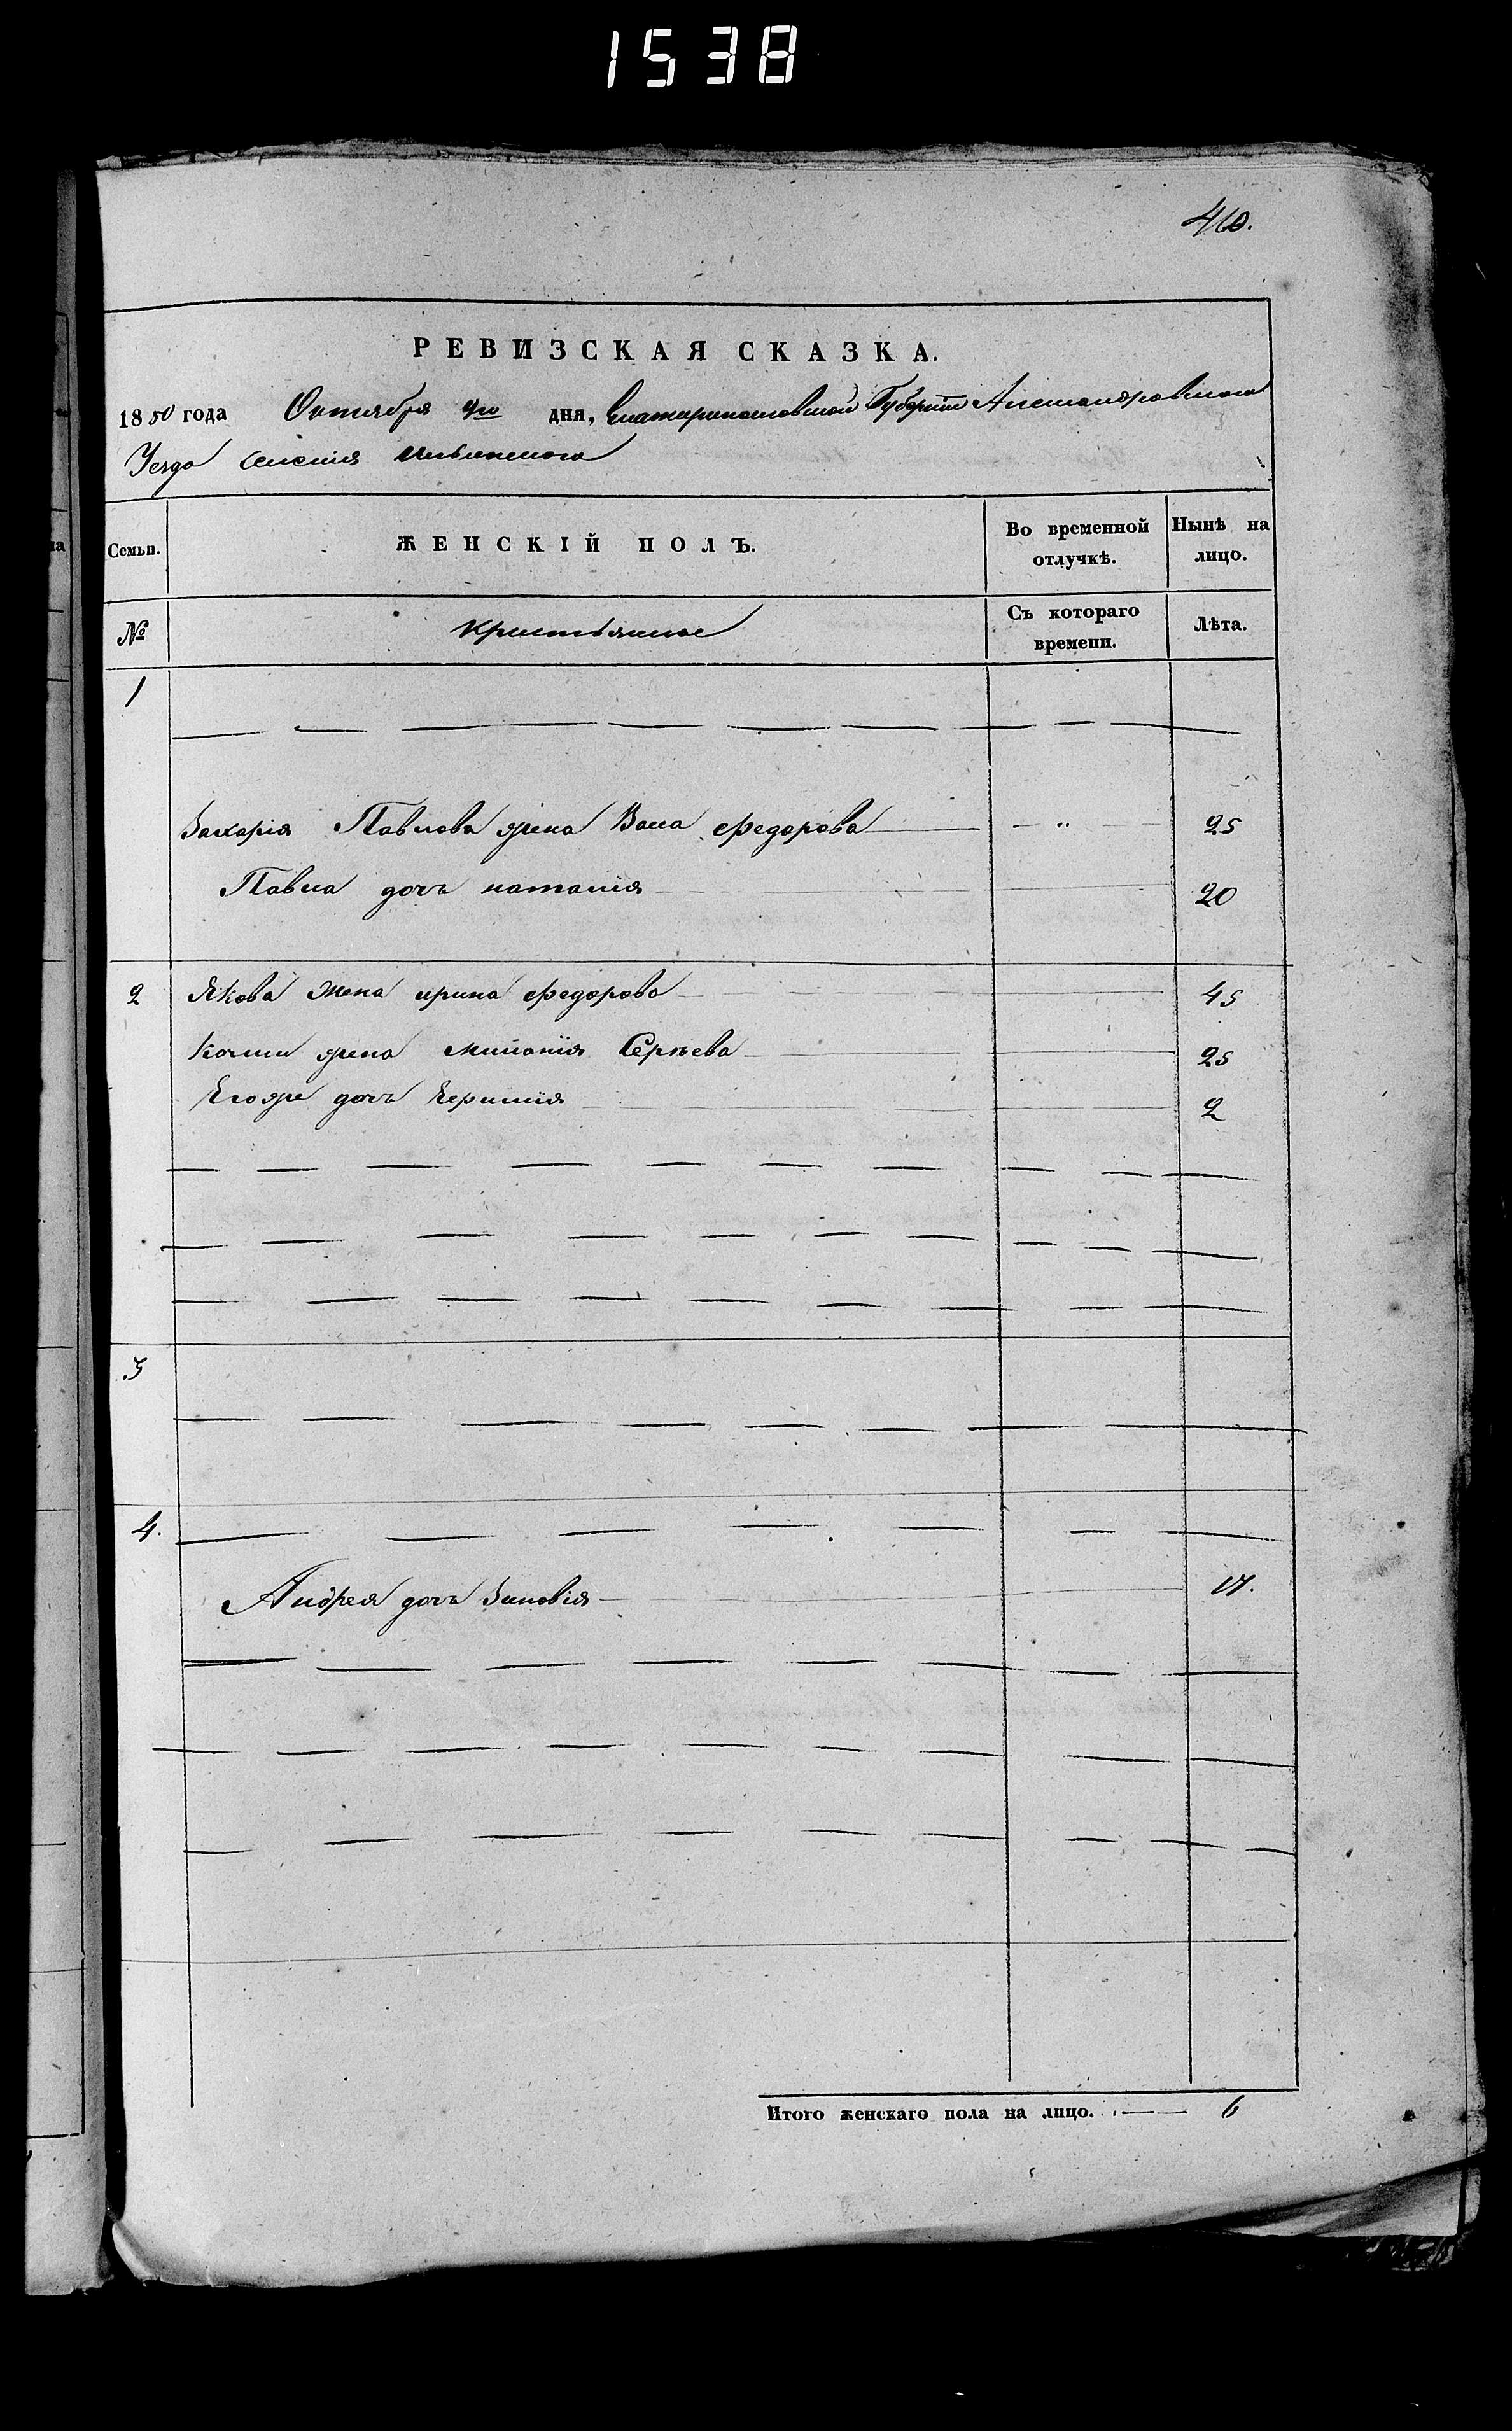 1538
460.
РЕВИЗСКАЯ СКАЗКА.
1850 года Октября 4го дня, Екатеринославской Губернiи Александровского
Уезда селения
Семьи.
ЖЕНСКІЙ ПОЛЪ.
Во временной отлучкѣ.
Нынѣ на лицо.
№
Съ котораго времени.
Лѣта.
1
Захарiя Павлова жена Васа Федорова — " — 25
Павла дочь наталiя 20
2 Якова жена ирина федорова 45
жена Сергѣева 25
дочь 2
3
4.
Андрея дочь Зиновiя 17.
Итого женскаго пола на лицо. 6